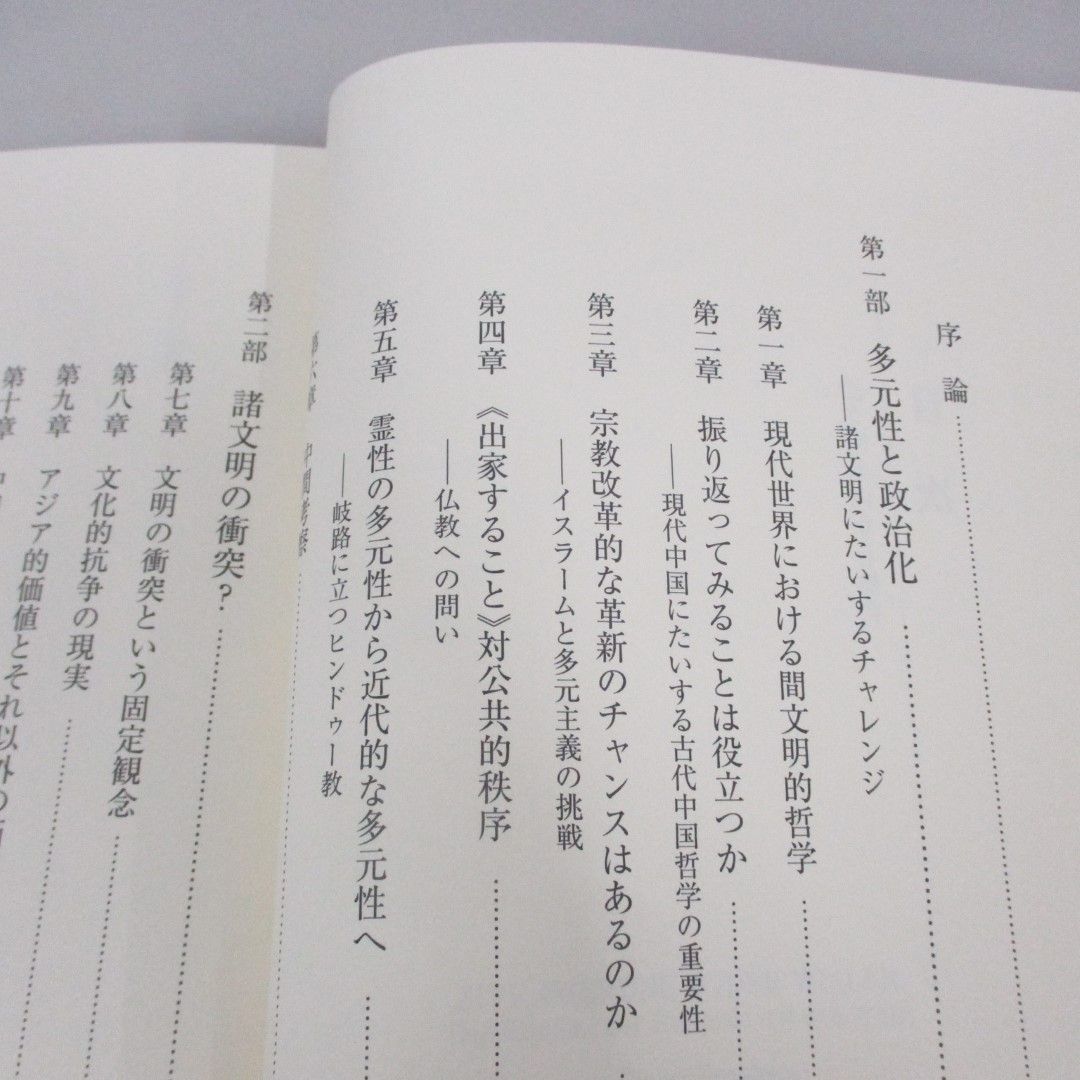 序論
第一部 多元性と政治化
——諸文明にたいするチャレンジ
第一章 現代世界における間文明的哲学
第二章 振り返ってみることは役立つか
——現代中国にたいする古代中国哲学の重要性
第三章 宗教改革的な革新のチャンスはあるのか
——イスラームと多元主義の挑戦
第四章 《出家すること》対公共的秩序
——仏教への問い
第五章 霊性の多元性から近代的な多元性へ
——岐路に立つヒンドゥー教
第六章 中間考察
第二部 諸文明の衝突?
第七章 文明の衝突という固定観念
第八章 文化的抗争の現実
第九章 アジア的価値とそれ以外の
第十章